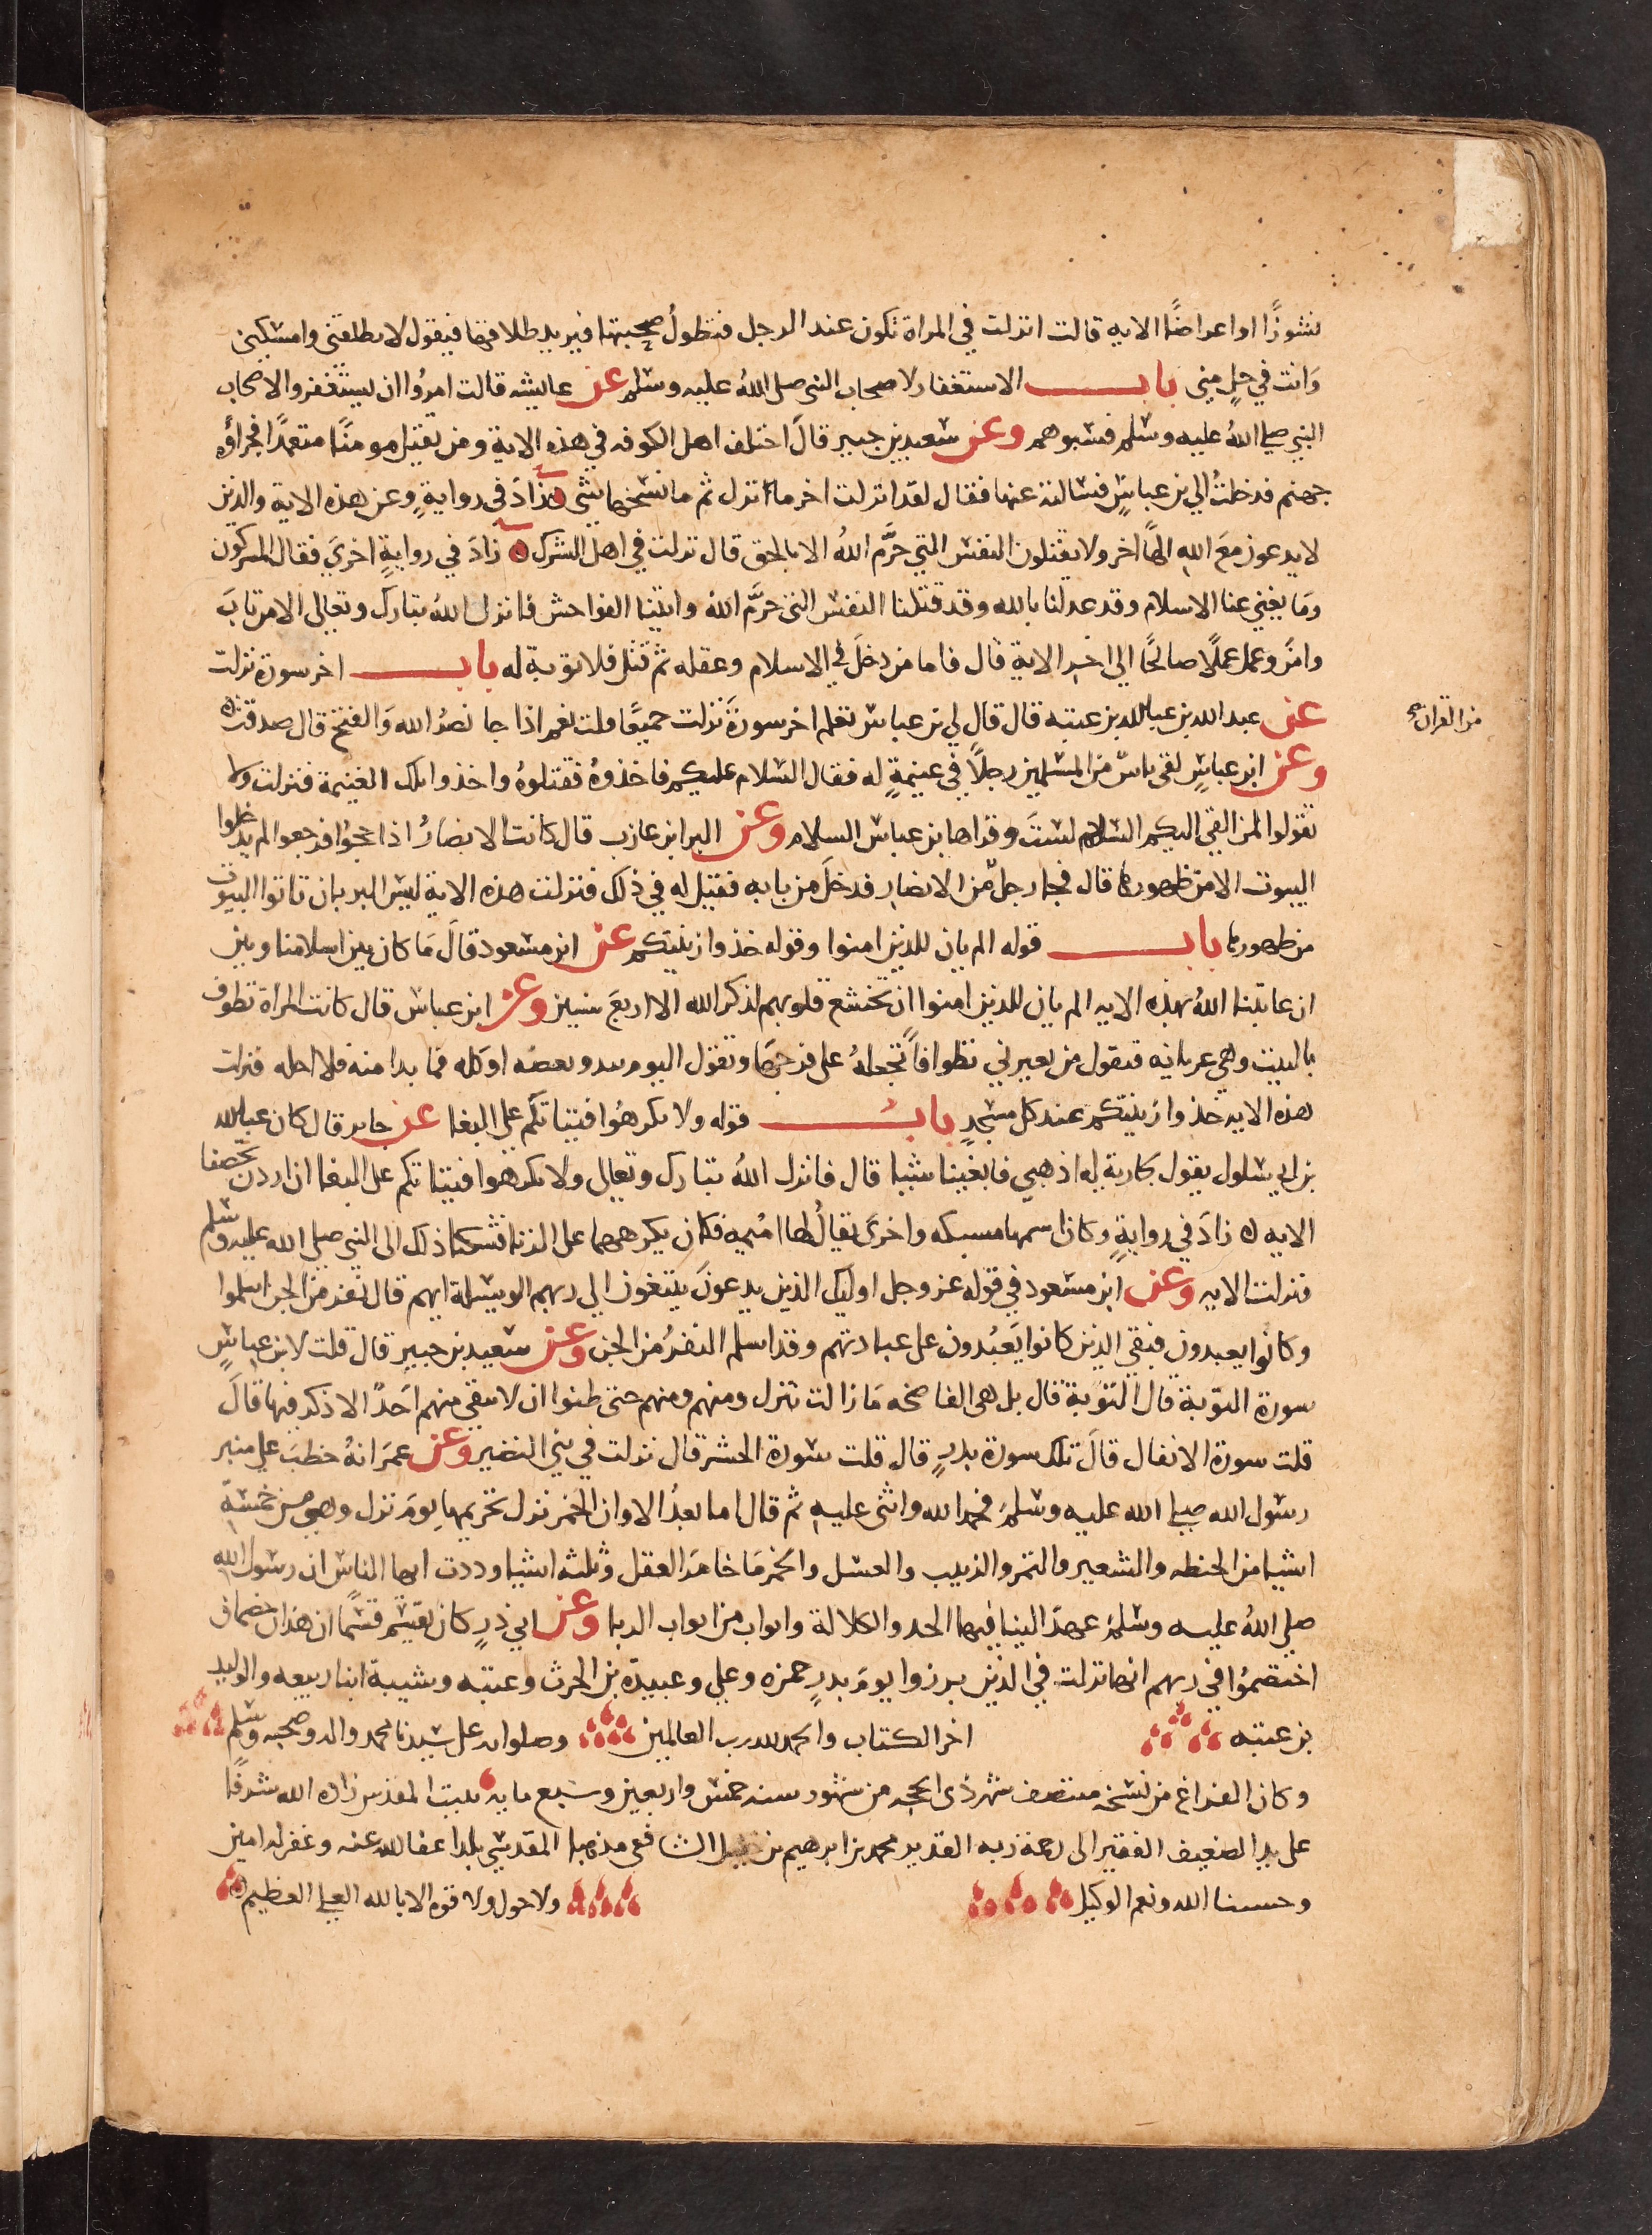 نشوزًا او اعراضًا الايه قالت انزلت في المراة تكون عند الرجل فتطولُ صحبتها فيريد طلاقها فيقول لا تطلقني وامسكني
وانت في حلٍ مني باب الاستغفار لاصحاب النبي صلى اللهُ عليه وسلم عن عايشه قالت امروُا ان يستغفروا لاصحاب
النبي صلى اللهُ عليه وسلم فسبوهم وعن سعيد بن جبير قالَ اختلف اهل الكوفه في هذه الاية ومن يقتل مومنًا متعمدًا فجزاؤه
جهنم فدخلتُ الي بن عباسٍ فسالته عنها فقال لقد انزلت اخر ما انزل ثم ما نسخها شي زادَ في روايةٍ وعن هذه الاية والذين
لا يدعون معَ اللهِ الهًا اخر ولا يقتلون النفس التي حرَّم اللهُ الا بالحق قال نزلت في اهل الشرك زادَ في روايةٍ اخريَ فقال المشركون
ومَا يغني عنا الاسلام وقد عدلنا بالله وقد قتلنا النفس التي حرَّم اللهُ واتينا الفواحش فانزل اللهُ تبارك وتعالي الا من تابَ
وامنَ وعمل عملًا صالحًا الي اخر الاية قال فاما من دخلَ في الاسلام وعقله ثم قتل فلا توبة له باب اخر سورة نزلت
من القران صح
عن عبد الله بن عبد الله بن عتبه قال قال لي بن عباس تعلم اخر سورةً نزلت جميعًا قلت نعم اذا جا نصرُ الله وَالفتح قال صدقت
وعن ابن عباسٍ لقي ناسٌ من المسلمين رجلًا في غنيمةٍ له فقال السلام عليكم فاخذوهُ فقتلوهُ واخذوا تلك الغنيمة فنزلت ولا
تقولوا لمن القي اليكم السلام لستَ وقراها بن عباس السلام وعن البرا بن عازب قال كانت الانصارُ اذا حجوُا فرجعوا لم يدخلوا
البيوت الا من ظهورها قال فجا رجلٌ من الانصار فدخلَ من بابه فقيل له في ذلك فنزلت هذه الاية ليس البر بان تاتوا البيوت
من ظهورها باب قوله الم يان للذين امنوا وقوله خذوا زينتكم عن ابن مسعود قالَ مَا كان بين اسلامنا وبين
ان عاتبنا اللهُ بهذه الايه الم يان للذين امنوا ان تخشع قلوبهم لذكر الله الا اربعَ سنين وعن ابن عباس قال كانت المراة تطوف
بالبيت وهي عريانه فتقول من يعيرني تطوافًا تجعلهُ على فرجهَا وتقول اليوم يبدو بعضه او كله فما بدا منه فلا احله فنزلت
هذه الايه خذوا زينتكم عند كل مسجدٍ بابُ قوله ولا تكرهوُا فتياتكم على البغا عن جابر قال كان عبد الله
بن ابي سلول يقول لجارية له اذهبي فابغينا شيا قال فانزل اللهُ تبارك وتعالي ولا تكرهوا فتياتكم على البغا ان اردن تحصنا
الايه زادَ في روايةٍ وكان اسمها مسيكه واخرىَ يقالُ لها اميمه فكان يكرههما على الزنا فشكتا ذلك الى النبي صلى الله عليه وسلم
فنزلت الايه وعن ابن مسعود في قوله عز وجل اوليك الذين يدعونَ يبتغون الي ربهم الوسيلة ايهم قال نفر من الجن اسلموا
وكانوُا يعبدون فبقي الذين كانوا يَعبُدون على عبادتهم وقد اسلم النفرُ من الجن وعن سعيد بن جبير قال قلت لابن عباسٍ
سورة التوبة قال التوبة قال بل هي الفاضحه مَا زالت تنزل ومنهم ومنهم حتى ظنوا ان لا يبقى منهم احَدٌ الا ذكر فيها قالَ
قلت سورة الانفال قالَ تلك سورة بدرٍ قال قلت سورة الحشر قال نزلت في بني النضير وعن عمَرَ انهُ خطبَ على منبر
رسول الله صلى الله عليه وسلمَ فحمد الله واثنى عليهِ ثم قال اما بعدُ الا وان الخمر نزل تحريمها يومَ نزل وهي من خمسةِ
اشيا من الحنطه والشعير والتمر والزبيب والعسل والخمر مَا خامَر العقل وثلثه اشيا وددت ايها الناس ان رسول الله
صلى اللهُ عليه وسلمَ عهدَ الينا فيها الجد والكلالة وابواب من ابواب الربا وعن ابي ذرٍ كان يقسِم قسَمًا ان هذان خصمان
اختصموُا في ربهم انها نزلت في الذين برزوا يومَ بدرٍ حمزه وعلي وعبيدة بن الحرث وعتبه وشيبة ابنا ربيعه والوليد
بن عتبه اخر الكتاب والحمد لله رب العالمين وصلواته على سيدنا محمد واله وصحبه وسلم
وكان الفراغ من نسخه منتصف شهر ذى الحجه من شهور سنه خمس واربعين وسبع مايه ببيت المقدس زاده الله شرفًا
على يد الضعيف الفقير الى رحمة ربه القدير محمد بن ابرهيم بن الشافعي مذهبا المقدسي بلدا عفا الله عنه وغفر له امين
وحسبنا الله ونعم الوكيل ولا حول ولا قوه الا بالله العلي العظيم